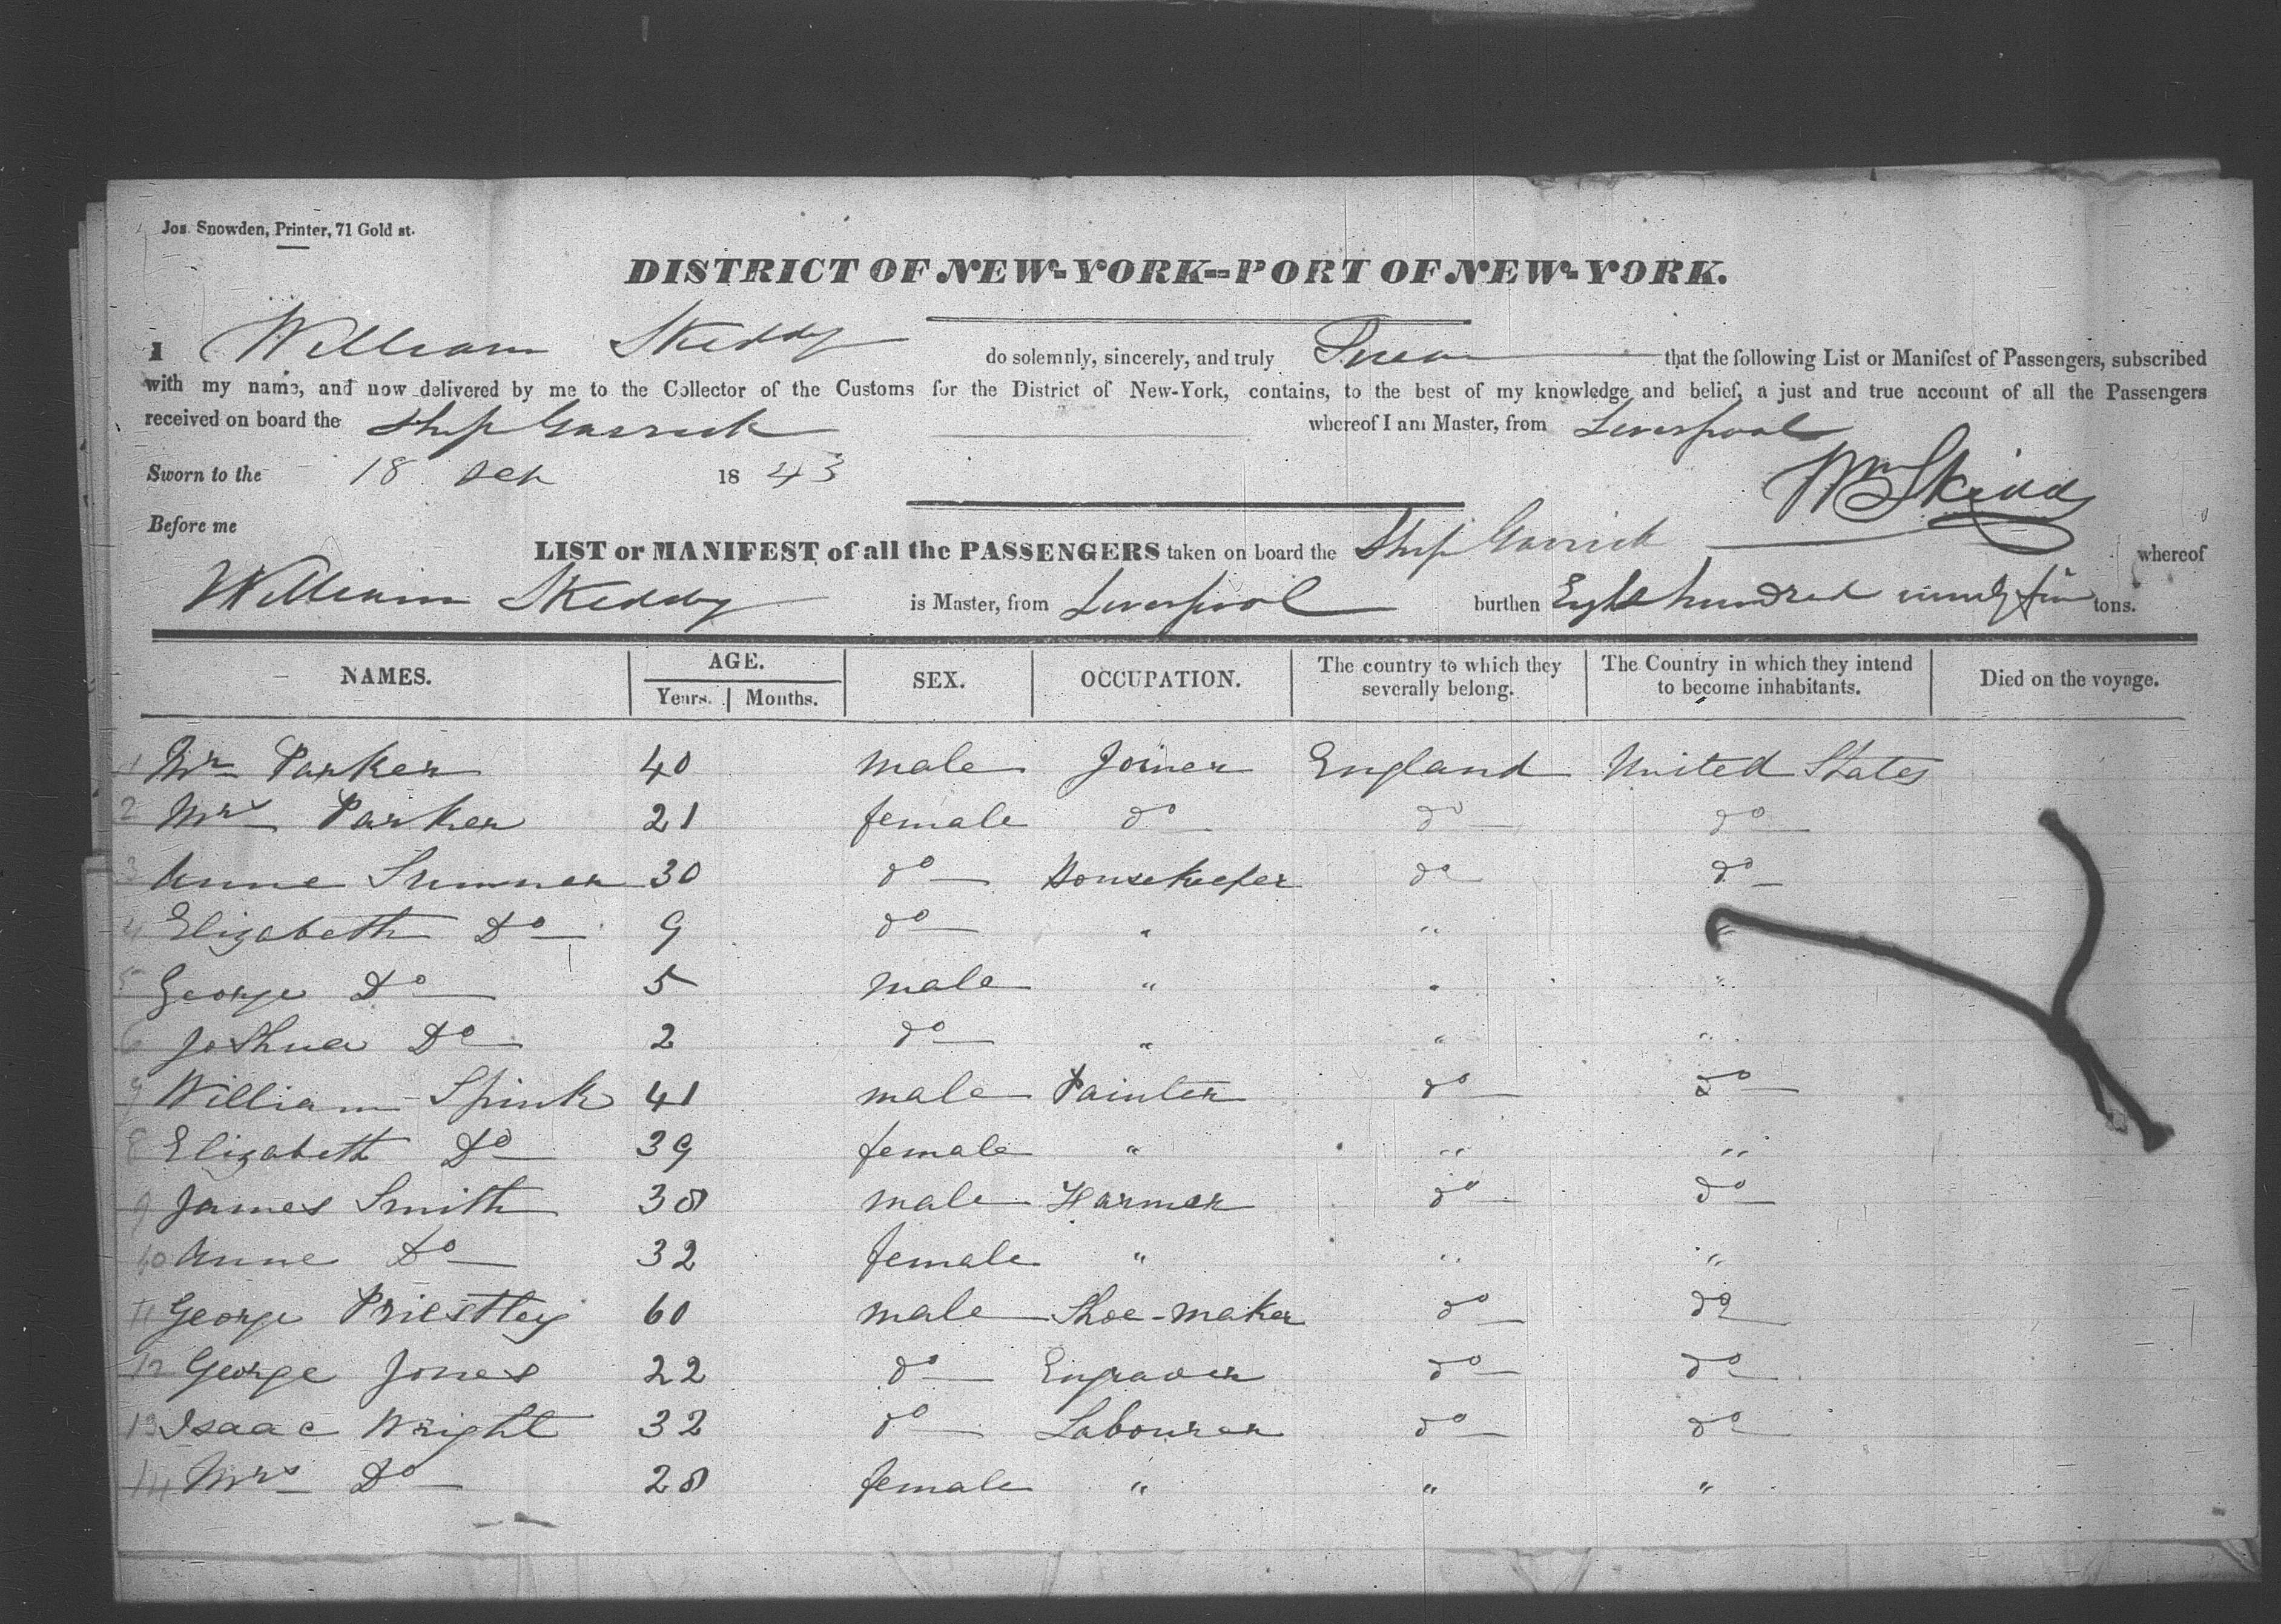 Jos. Snowden, Printer, 71 Gold st.
DISTRICT OF NEW-YORK--PORT OF NEW-YORK.
I William Skiddy do solemnly, sincerely, and truly Swear that the following List or Manifest of Passengers, subscribed
with my name, and now delivered by me to the Collector of the Customs for the District of New-York, contains, to the best of my knowledge and belief, a just and true account of all the Passengers
received on board the Ship Garrick whereof I am Master, from Liverpool
Sworn to the 18 1843
Wm Skiddy
Before me
LIST or MANIFEST of all the PASSENGERS taken on board the Ship Garrick whereof
William Skiddy is Master, from Liverpool burthen Eight hundred ninety five tons.
NAMES. AGE. Years. Months. SEX. OCCUPATION. The country to which they severally belong. The Country in which they intend to become inhabitants. Died on the voyage.
1 Mr Parker 40 male Joiner England United States
2 Mrs Parker 21 female do do do
3 Anne Sumner 30 do Housekeeper do do
4 Elizabeth Do 9 do " " "
5 George Do 5 male " " "
6 Joshua Do 2 do " " "
7 William Spink 41 male Painter do do
8 Elizabeth Do 39 female " " "
9 James Smith 38 male Farmer do do
10 Anne Do 32 female " " "
11 George Priestley 60 male Shoe-maker do do
12 George Jones 22 do Engraver do do
13 Isaac Wright 32 do Labourer do do
14 Mrs Do 28 female " " "